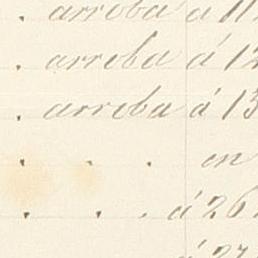 . arroba á 11
. arroba á 12
. arroba á 13
. . . en
. . . á 26
á 27